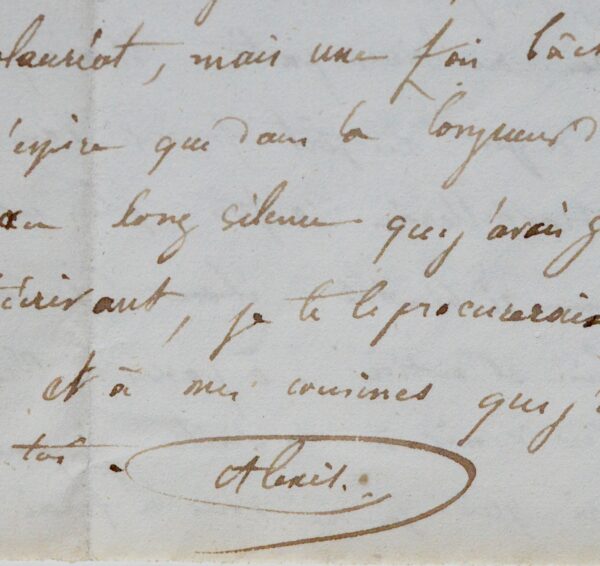 calauréat, mais une fois bâch
j'espère que dans la longueur d
au long silence que j'avais g
t'écrivant, je te le procurerais
et à mes cousines que j'
toi. Alexis.